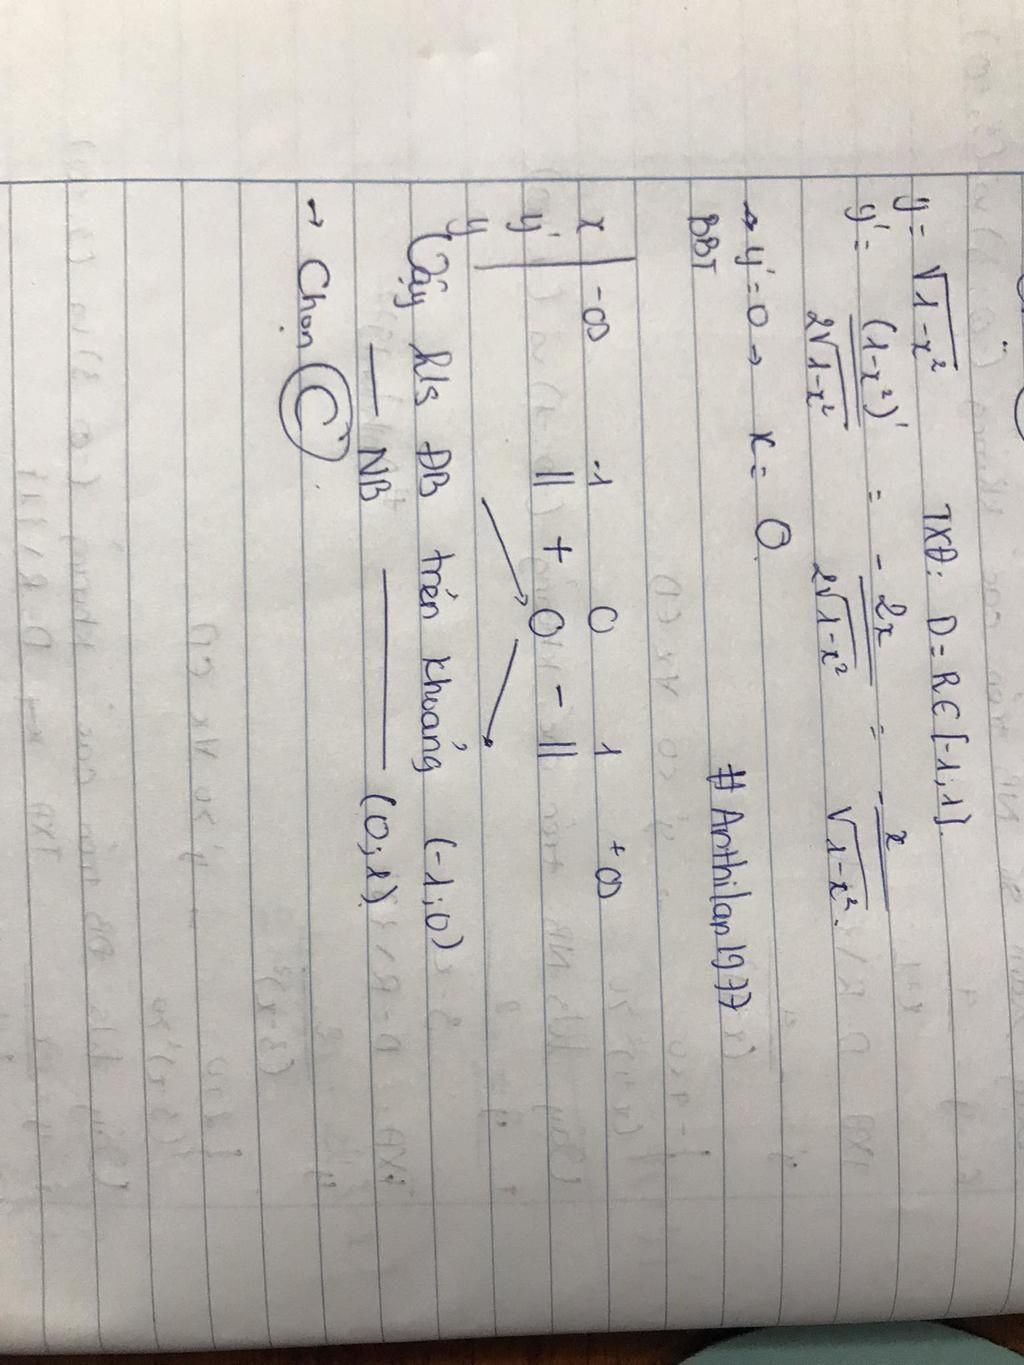 y = √(1-x²)    TXĐ: D = R ∈ [-1;1].
y' = (1-x²)' / 2√(1-x²) = - 2x / 2√(1-x²) = - x / √(1-x²).
→ y' = 0 → x = 0.
BBT    # Anthilan1977
x | -∞ -1 0 1 +∞
y' | || + 0 - ||
y
Vậy h/s ĐB trên khoảng (-1;0)
— NB — (0;1)
→ Chọn C.